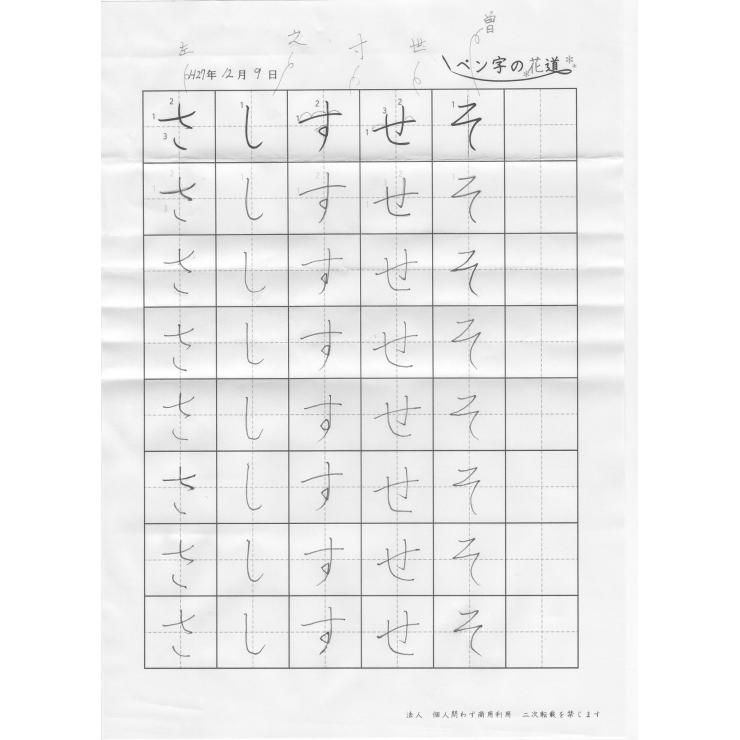 左 之 寸 世 曽
H27年 12月 9日 ペン字の花道
さ し す せ そ
さ し す せ そ
さ し す せ そ
さ し す せ そ
さ し す せ そ
さ し す せ そ
さ し す せ そ
さ し す せ そ
法人 個人問わず商用利用 二次転載を禁じます